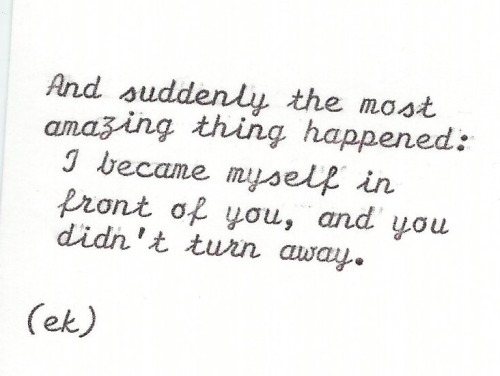 And suddenly the most
amazing thing happened:
I became myself in
front of you, and you
didn't turn away.
(ek)